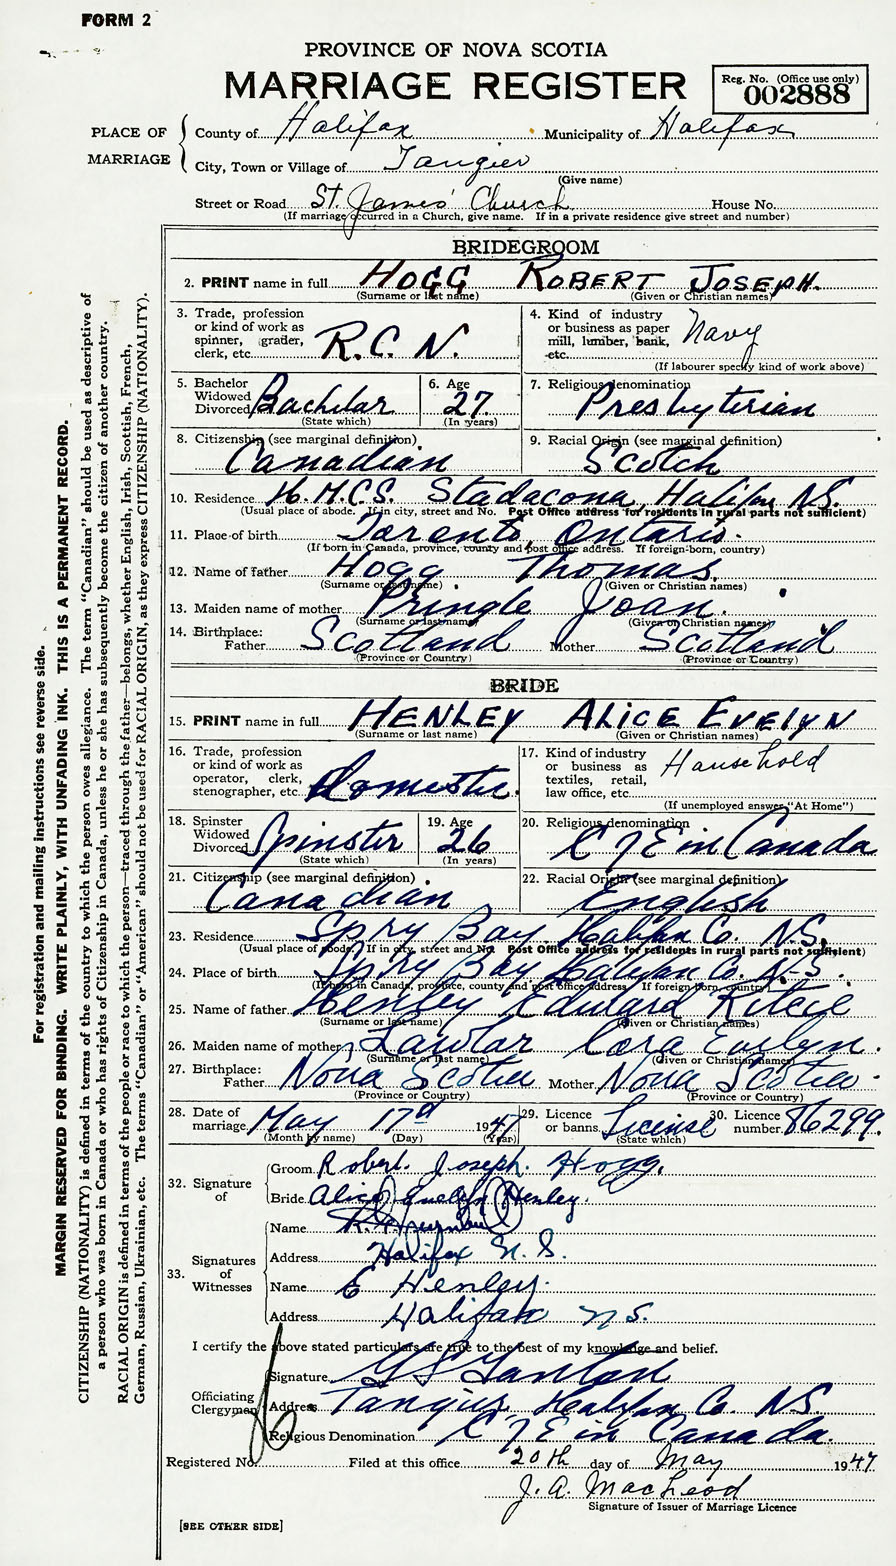 FORM 2
PROVINCE OF NOVA SCOTIA
MARRIAGE REGISTER
Reg. No. (Office use only)
002888
PLACE OF MARRIAGE
County of Halifax Municipality of Halifax
City, Town or Village of Tangier
(Give name)
Street or Road St. James' Church House No.
(If marriage occurred in a Church, give name. If in a private residence give street and number)
BRIDEGROOM
2. PRINT name in full HOGG ROBERT JOSEPH.
(Surname or last name) (Given or Christian names)
3. Trade, profession or kind of work as spinner, grader, clerk, etc. R.C.N.
4. Kind of industry or business as paper mill, lumber, bank, etc. Navy
(If labourer specify kind of work above)
5. Bachelor Widowed Divorced Bachelar
(State which)
6. Age 27
(In years)
7. Religious denomination Presbyterian
8. Citizenship (see marginal definition) Canadian
9. Racial Origin (see marginal definition) Scotch
10. Residence H.M.C.S. Stadacona Halifax N.S.
(Usual place of abode. If in city, street and No. Post Office address for residents in rural parts not sufficient)
11. Place of birth Toronto, Ontario.
(If born in Canada, province, county and post office address. If foreign-born, country)
12. Name of father Hogg Thomas.
(Surname or last name) (Given or Christian names)
13. Maiden name of mother Pringle Joan.
(Surname or last name) (Given or Christian names)
14. Birthplace: Father Scotland Mother Scotland
(Province or Country) (Province or Country)
BRIDE
15. PRINT name in full HENLEY ALICE EVELYN
(Surname or last name) (Given or Christian names)
16. Trade, profession or kind of work as operator, clerk, stenographer, etc. Domestic.
17. Kind of industry or business as textiles, retail, law office, etc. Household
(If unemployed answer "At Home")
18. Spinster Widowed Divorced Spinster
(State which)
19. Age 26
(In years)
20. Religious denomination C of E in Canada
21. Citizenship (see marginal definition) Canadian
22. Racial Origin (see marginal definition) English
23. Residence Spry Bay Halifax Co. N.S.
(Usual place of abode. If in city, street and No. Post Office address for residents in rural parts not sufficient)
24. Place of birth Spry Bay Halifax Co N-S.
(If born in Canada, province, county and post office address. If foreign born, country)
25. Name of father Henley Edward
(Surname or last name) (Given or Christian names)
26. Maiden name of mother Lawlor Cora Evelyn.
(Surname or last name) (Given or Christian names)
27. Birthplace: Father Nova Scotia Mother Nova Scotia
(Province or Country) (Province or Country)
28. Date of marriage May 17d 1947
(Month by name) (Day) (Year)
29. Licence or banns License
(State which)
30. Licence number 86299.
32. Signature of
Groom Robert. Joseph. Hogg.
Bride Alice Evelyn Henley.
33. Signatures of Witnesses
Name
Address Halifax N.S.
Name E Henley.
Address Halifax N.S.
I certify the above stated particulars are true to the best of my knowledge and belief.
Officiating Clergyman
Signature
Address Tangier Halifax Co. N.S.
Religious Denomination C of E in Canada.
Registered No. Filed at this office 20th day of May 1947
J. A. MacLeod
Signature of Issuer of Marriage Licence
[SEE OTHER SIDE]
For registration and mailing instructions see reverse side.
MARGIN RESERVED FOR BINDING. WRITE PLAINLY, WITH UNFADING INK. THIS IS A PERMANENT RECORD.
CITIZENSHIP (NATIONALITY) is defined in terms of the country to which the person owes allegiance. The term "Canadian" should be used as descriptive of
a person who was born in Canada or who has rights of Citizenship in Canada, unless he or she has subsequently become the citizen of another country.
RACIAL ORIGIN is defined in terms of the people or race to which the person—traced through the father—belongs, whether English, Irish, Scottish, French,
German, Russian, Ukrainian, etc. The terms "Canadian" or "American" should not be used for RACIAL ORIGIN, as they express CITIZENSHIP (NATIONALITY).